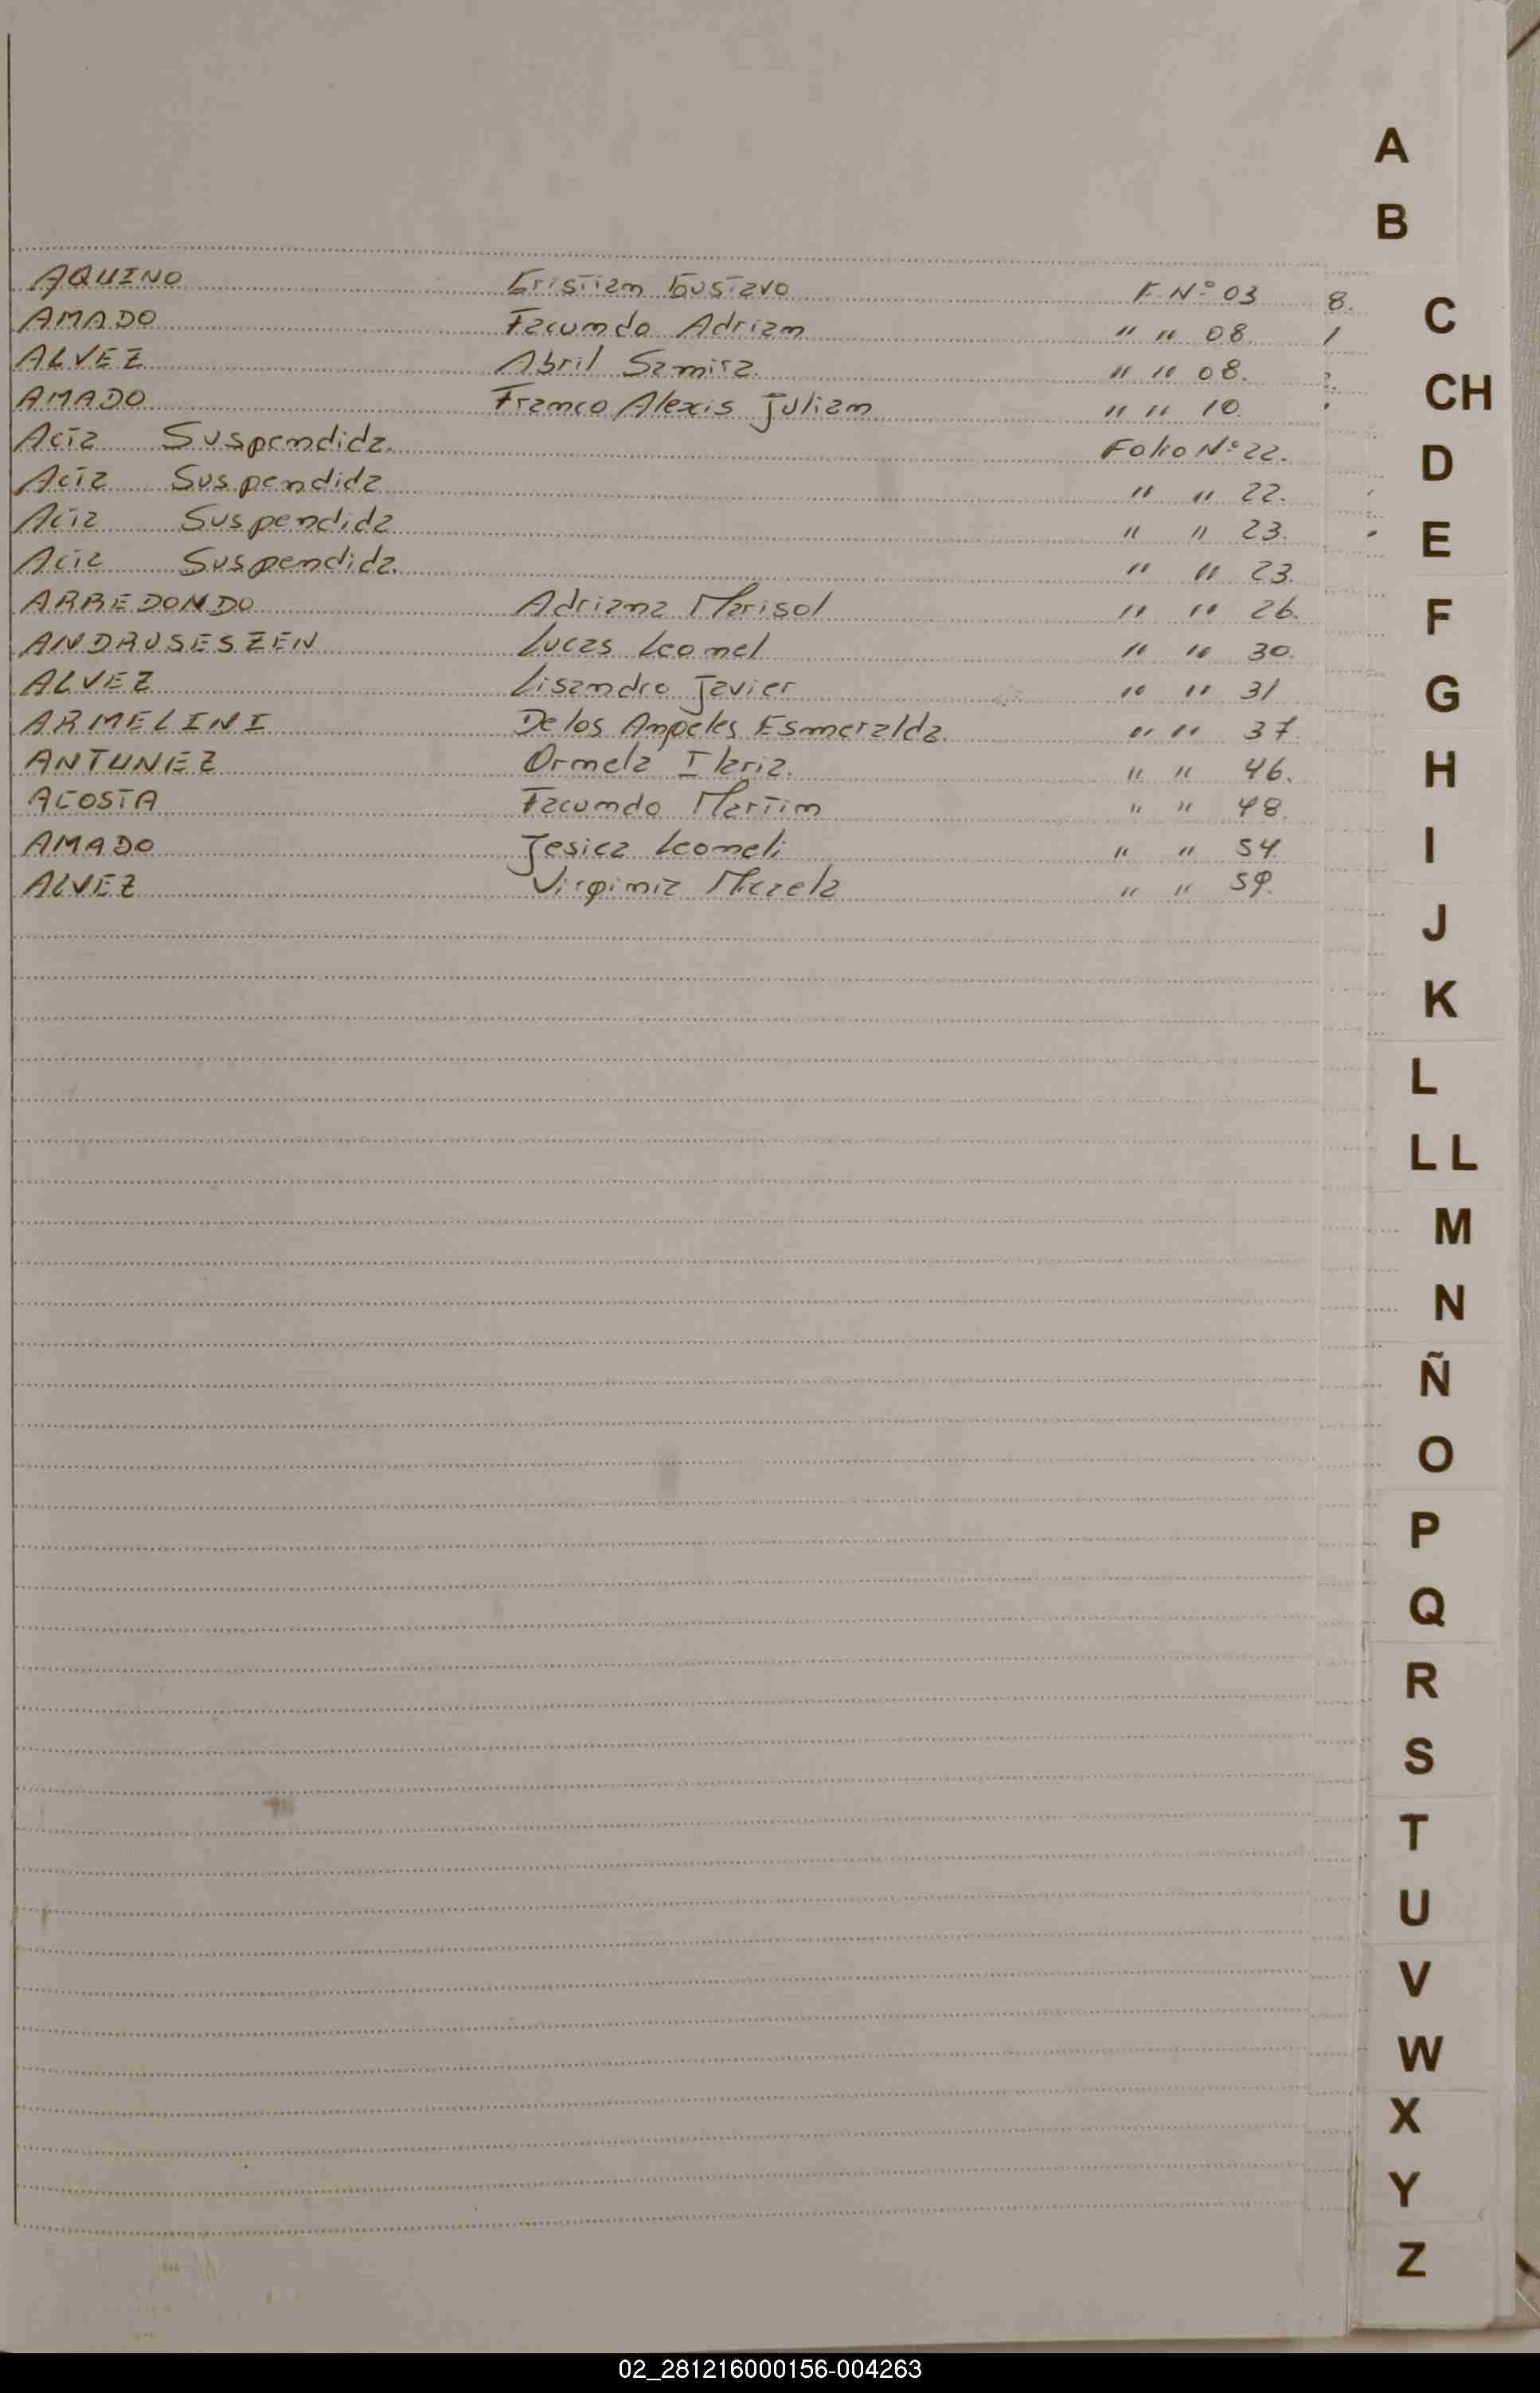 A
B
AQUINO Cristian Gustavo F. Nº 03 8.
C
AMADO Facundo Adrian " " 08. 1
ALVEZ Abril Samira. " " 08.
CH
AMADO Franco Alexis Julian " " 10.
Acta Suspendida. Folio Nº 22.
D
Acta Suspendida " " 22.
Acta Suspendida " " 23.
E
Acta Suspendida. " " 23.
ARREDONDO Adriana Marisol " " 26.
F
ANDRUSESZEN Lucas Leonel " " 30.
ALVEZ Lisandro Javier " " 31
G
ARMELINI De los Angeles Esmeralda. " " 37.
ANTUNEZ Ornela Ilaria. " " 46.
H
ACOSTA Facundo Martin " " 48.
AMADO Jesica Leoneli " " 54.
I
ALVEZ Virginia Micaela " " 59.
J
K
L
LL
M
N
Ñ
O
P
Q
R
S
T
U
V
W
X
Y
Z
02_281216000156-004263